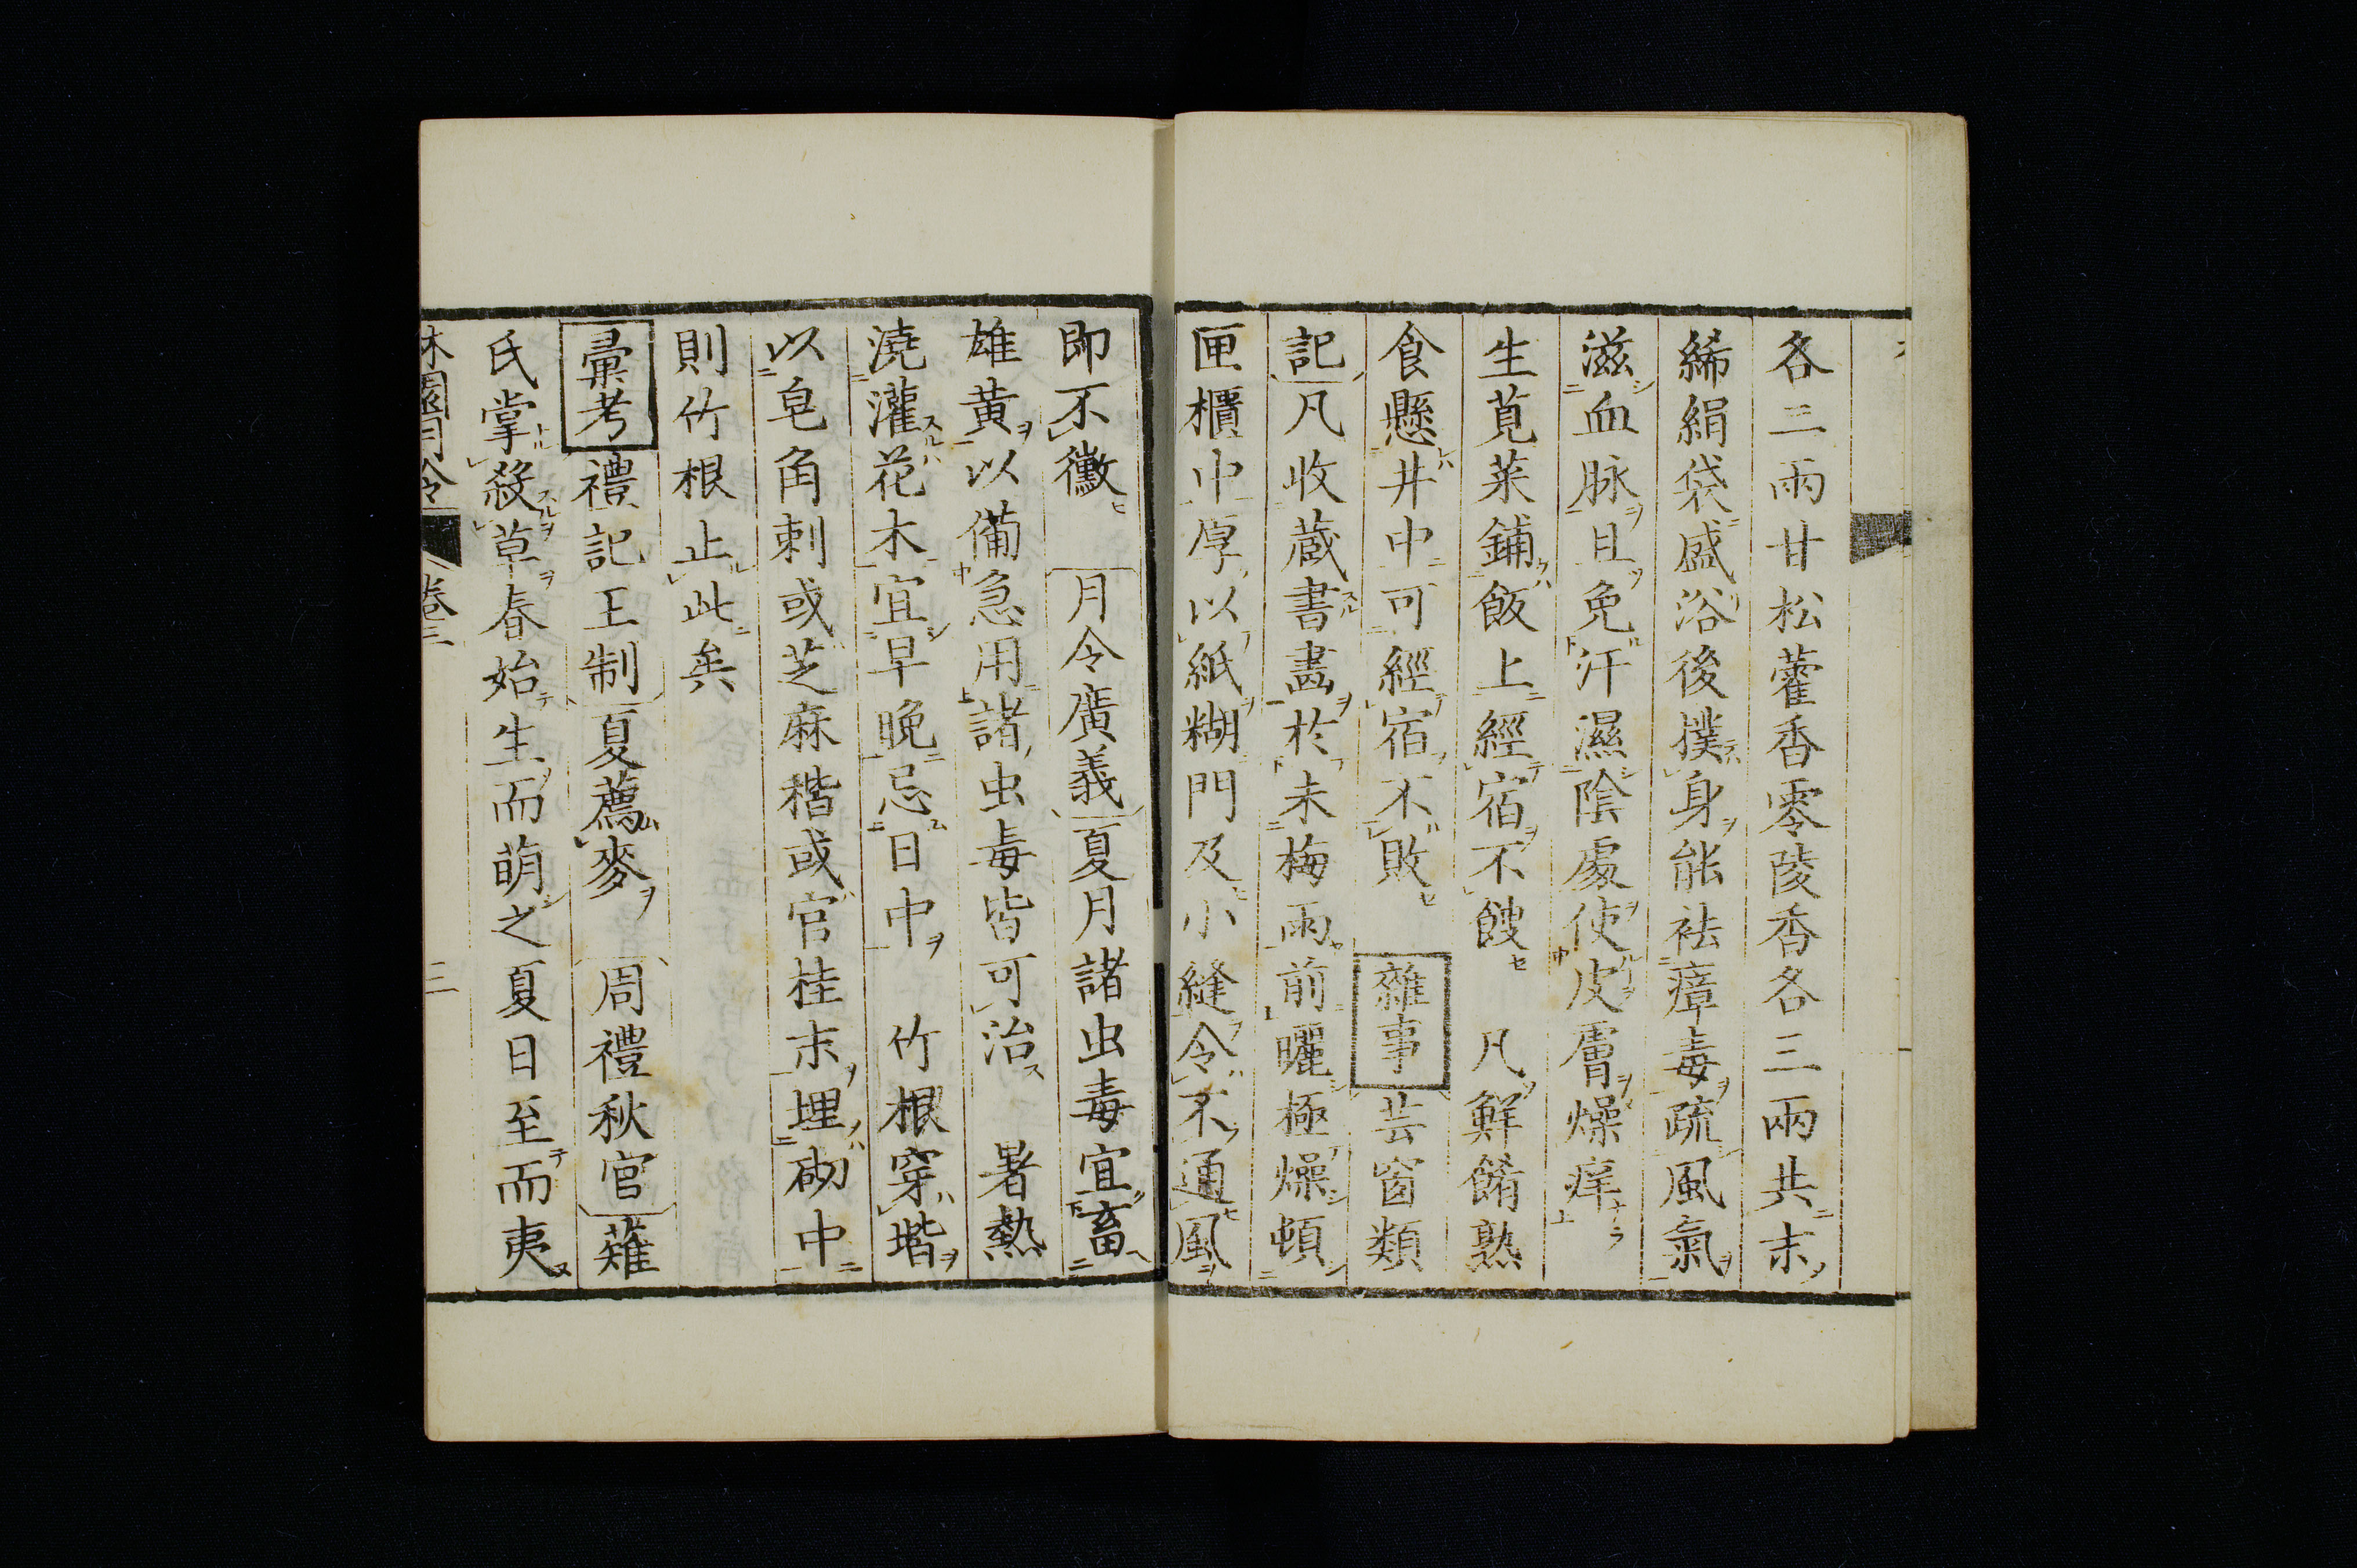 各二兩甘松藿香零陵香各三兩共末
絺絹袋盛浴後撲身能袪瘴毒疏風氣
滋血脉且免汗濕陰處使皮膚燥痒
生莧菜鋪飯上經宿不餿　凡鮮餚熟
食懸井中可經宿不敗　雜事芸窗類
記凡收蔵書畵於未梅雨前曬極燥頓
匣櫃中厚以紙糊門及小縫令不通風
即不黴　月令廣義夏月諸虫毒宜畜
雄黃以備急用諸虫毒皆可治　暑熱
澆灌花木宜早晚忌日中　竹根穿堦
以皂角刺或芝麻稭或官桂末埋砌中
則竹根止此矣
彙考禮記王制夏薦麥　周禮秋官薙
氏掌殺草春始生而萌之夏日至而夷
休園月令　卷三　三